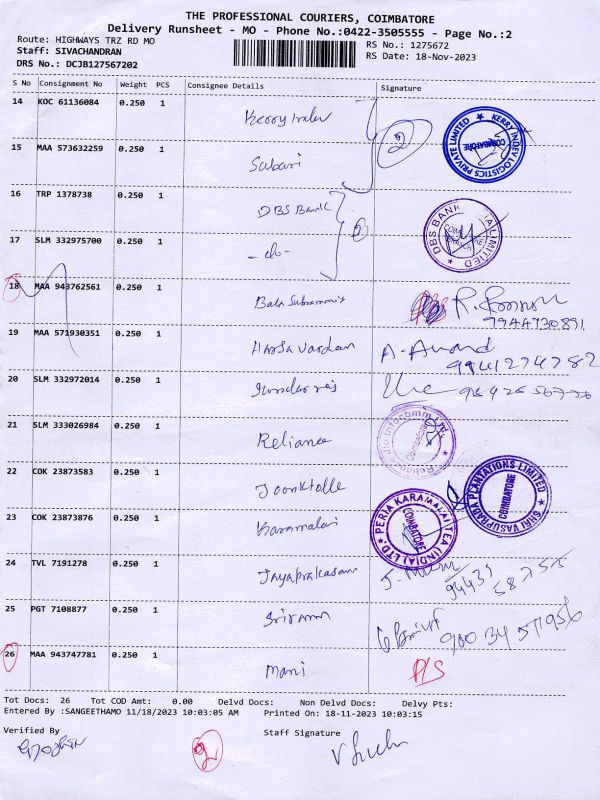 THE PROFESSIONAL COURIERS, COIMBATORE
Delivery Runsheet - MO - Phone No.:0422-3505555 - Page No.:2
Route: HIGHWAYS TRZ RD MO
RS No.: 1275672
Staff: SIVACHANDRAN
RS Date: 18-Nov-2023
DRS No.: DCJB127567202
S No Consignment No Weight PCS Consignee Details Signature
14 KOC 61136084 0.250 1 Kerry Indev 2
KERRY INDEV LOGISTICS PRIVATE LIMITED COIMBATORE
15 MAA 573632259 0.250 1 Sabari
16 TRP 1378738 0.250 1 DBS Bank
DBS BANK LIMITED
17 SLM 332975700 0.250 1 -do-
18 MAA 943762561 0.250 1
9944730891
19 MAA 571930351 0.250 1 Harsavardan A. Anand
20 SLM 332972014 0.250 1
21 SLM 333026984 0.250 1 Reliance
22 COK 23873583 0.250 1
SHRI VASUPRADA PLANTATIONS LIMITED COIMBATORE
23 COK 23873876 0.250 1 Karamalai
PERIA KARAMALAI TEA (INDIA) LTD. COIMBATORE
24 TVL 7191278 0.250 1 Jayaprakasam
25 PGT 7108877 0.250 1 Sriram
26 MAA 943747781 0.250 1 Mani P/S
Tot Docs: 26 Tot COD Amt: 0.00 Delvd Docs: Non Delvd Docs: Delvy Pts:
Entered By :SANGEETHAMO 11/18/2023 10:03:05 AM Printed On: 18-11-2023 10:03:15
Verified By Staff Signature